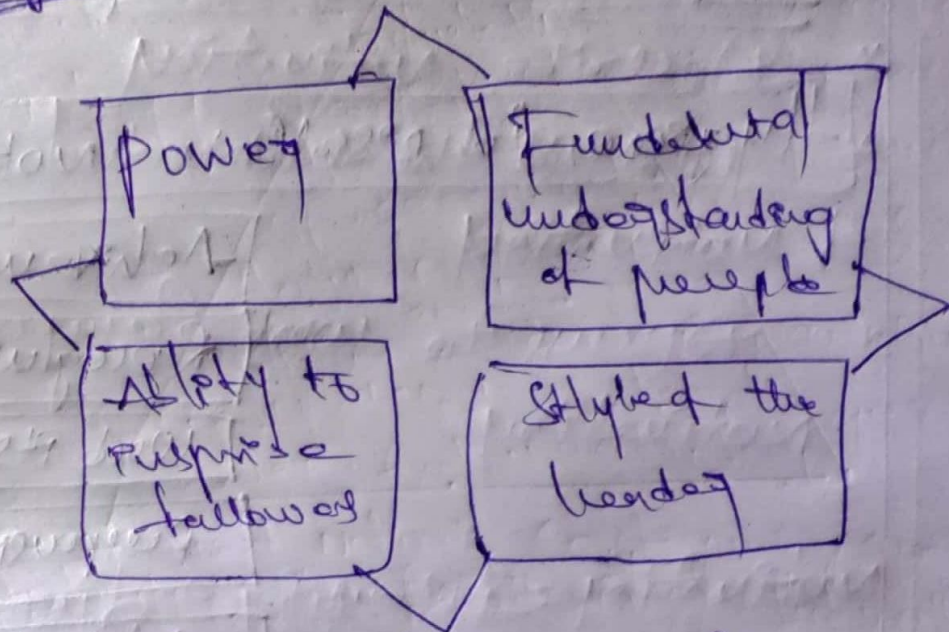 Power
Fundamental
understanding
of people
Ability to
inspire
followers
Style of the
leader